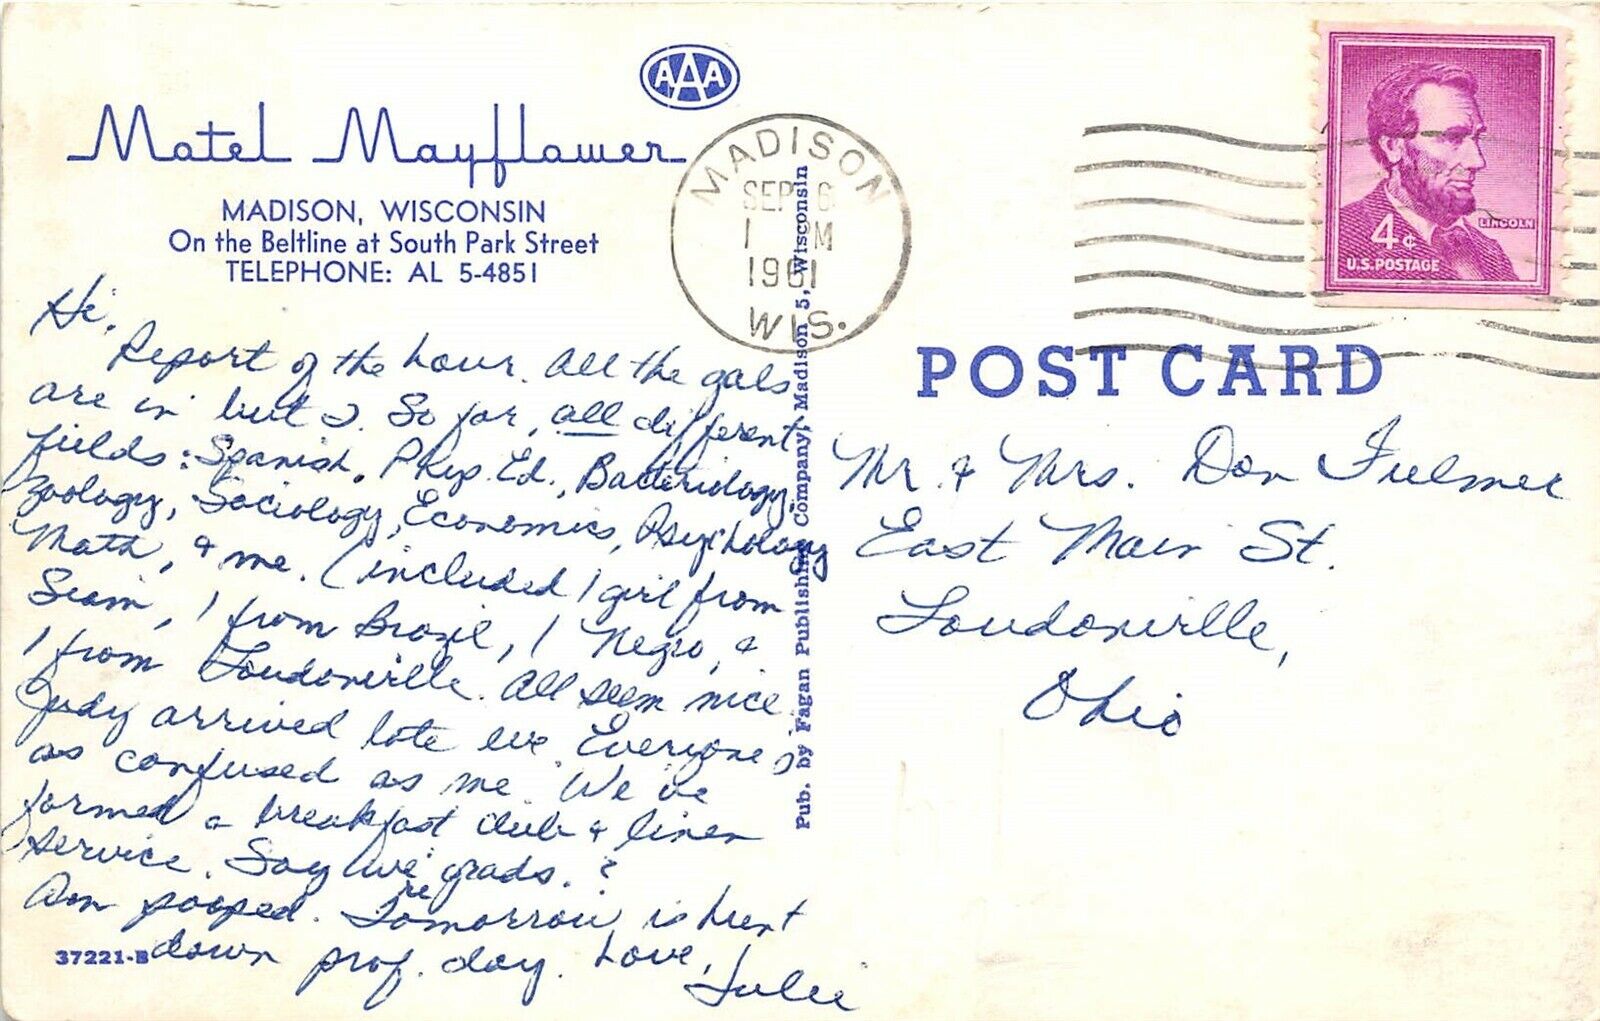 AAA
Motel Mayflower
MADISON, WISCONSIN
On the Beltline at South Park Street
TELEPHONE: AL 5-4851
Hi,
Report of the hour. All the gals
are in but 2. So far, all different
fields: Spanish, Phys. Ed., Bacteriology,
Zoology, Sociology, Economics, Psychology
Math, & me. (included 1 girl from
Siam, 1 from Brazil, 1 Negro, &
1 from Loudonville. All seem nice.
Judy arrived late eve. Everyone's
as confused as me. We've
formed a breakfast club & linen
service. Say we're grads.?
Am pooped. Tomorrow is hunt
down prof. day. Love,
Julie
37221-B
Pub. by Fagan Publishing Company, Madison 5, Wisconsin
MADISON
SEP 6
1 M
1961
WIS.
4¢
LINCOLN
U.S. POSTAGE
POST CARD
Mr. & Mrs. Don Fulmer
East Main St.
Loudonville,
Ohio